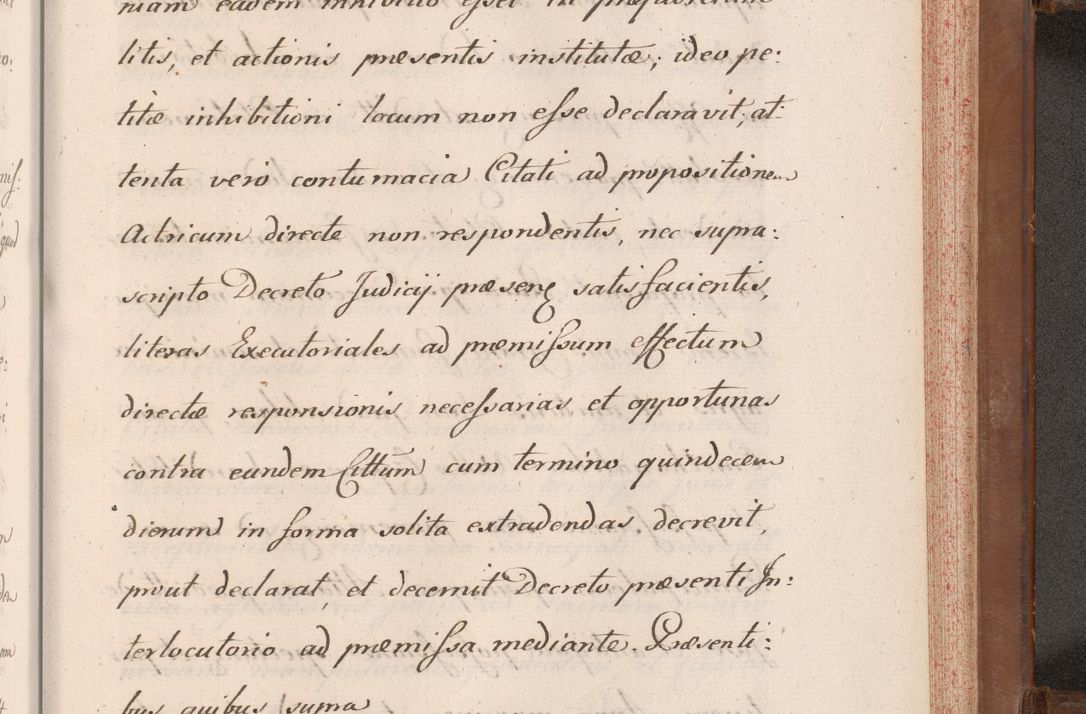 niam eadem inhibitio esset in præjudicium
litis, et actionis præsentis institutæ; ideo pe:
titæ inhibitioni locum non esse declaravit; at:
tenta vero contumacia Citati ad propositionem
Actricum directe non respondentis, nec supra:
scripto Decreto Judicij præsenę satisfacientis,
literas Executoriales ad præmissum effectum
directæ responsionis necessarias et opportunas
contra eundem Cittum cum termino quindecem
dierum in forma solita extradendas decrevit,
prout declarat, et decernit Decreto præsenti In:
terlocutorio ad præmissa mediante. Præsenti:
bus quibus supra